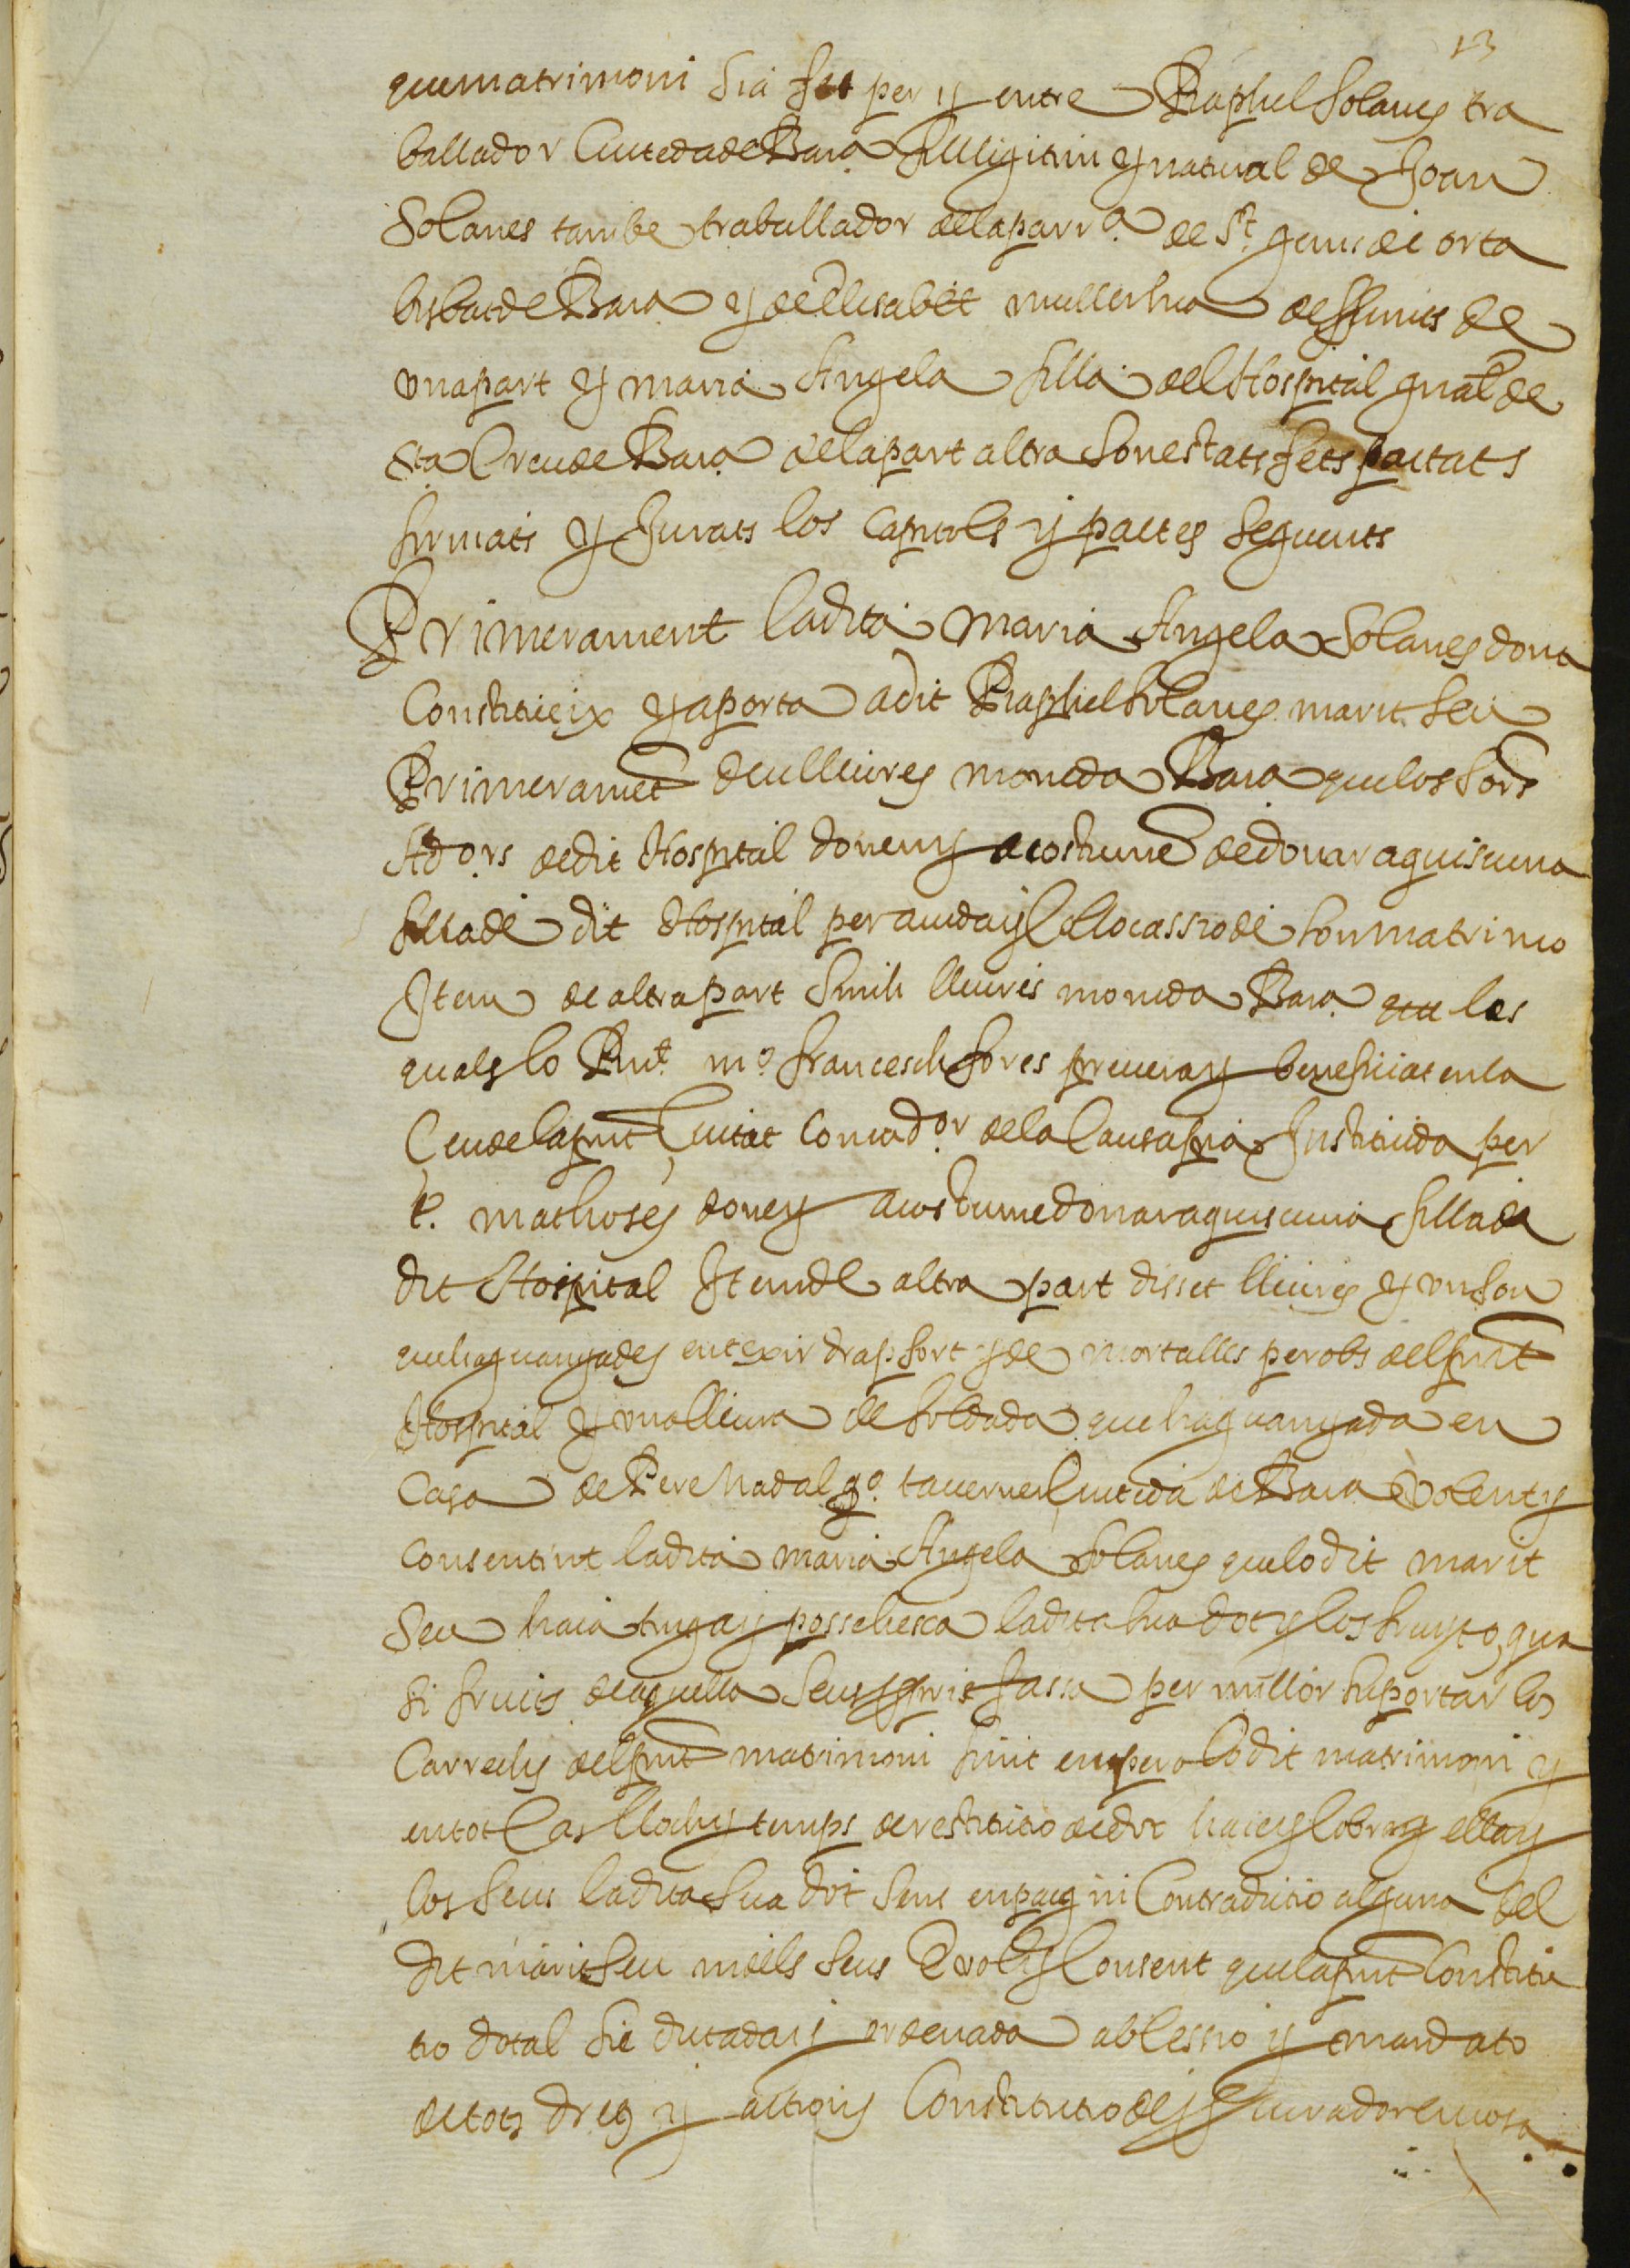 13
que matrimoni sia fet per y entre Raphel Solanes tra
ballador Ciuteda de Bara fill ligitim y natural de Joan
Solanes tambe traballador de la parra. de St. genis de orta
bisbat de Bara y de Elisabet muller sua deffuncts de
una part y maria Angela filla del Hospital gnal de
Sta Creu de Bara de la part altra son estats fets pactats
firmats y Jurats los Capitols y pactes seguents
Primerament la dita Maria Angela Solanes dona
Constitueix y aporta a dit Raphel Solanes marit seu
Primeramet deu lliures moneda Bara que los Sors
Adors de dit Hospital donen y acostumē de donar a quiscuna
filla de dit Hospital per aiuda y collocassio de son matrimo
Item de altra part sinch lliures moneda Bara que les
quals lo Rnt. mo. francesch fores prevere y benefficiat en la
Ceu de la pnt Ciutat Comador. de la Causa pia Instituida per
P. mathoses done y acostume donar a quiscuna filla de
dit Hospital Item de altra part disset lliures y un sou
que ha guanyades en texir drap fort y de mortalles per obs del pnt
Hospital y una lliura de soldada que ha guanyada en
Casa de Pere Nadal qo. taverner Ciuteda de Bara E volent y
Consentint la dita maria Angela Solanes que lo dit marit
seu haia tinga y possehesca la dita sua dot y los fruyts, y qua
si fruits de aquella seus ppris fassa per millor suportar los
Carrechs del pnt matrimoni finit empero lo dit matrimoni y
en tot Cas lloch y temps de restitutio de dot haie y cobre y ella y
los seus la dita sua dot sens enpaig ni Contradictio alguna del
dit marit seu ni dels seus E vol y Consent que la pnt Constitu
tio dotal sie dictada y ordenada ab Cessio y mandato
de tots drets y actions Constitutio de procurador en cosa